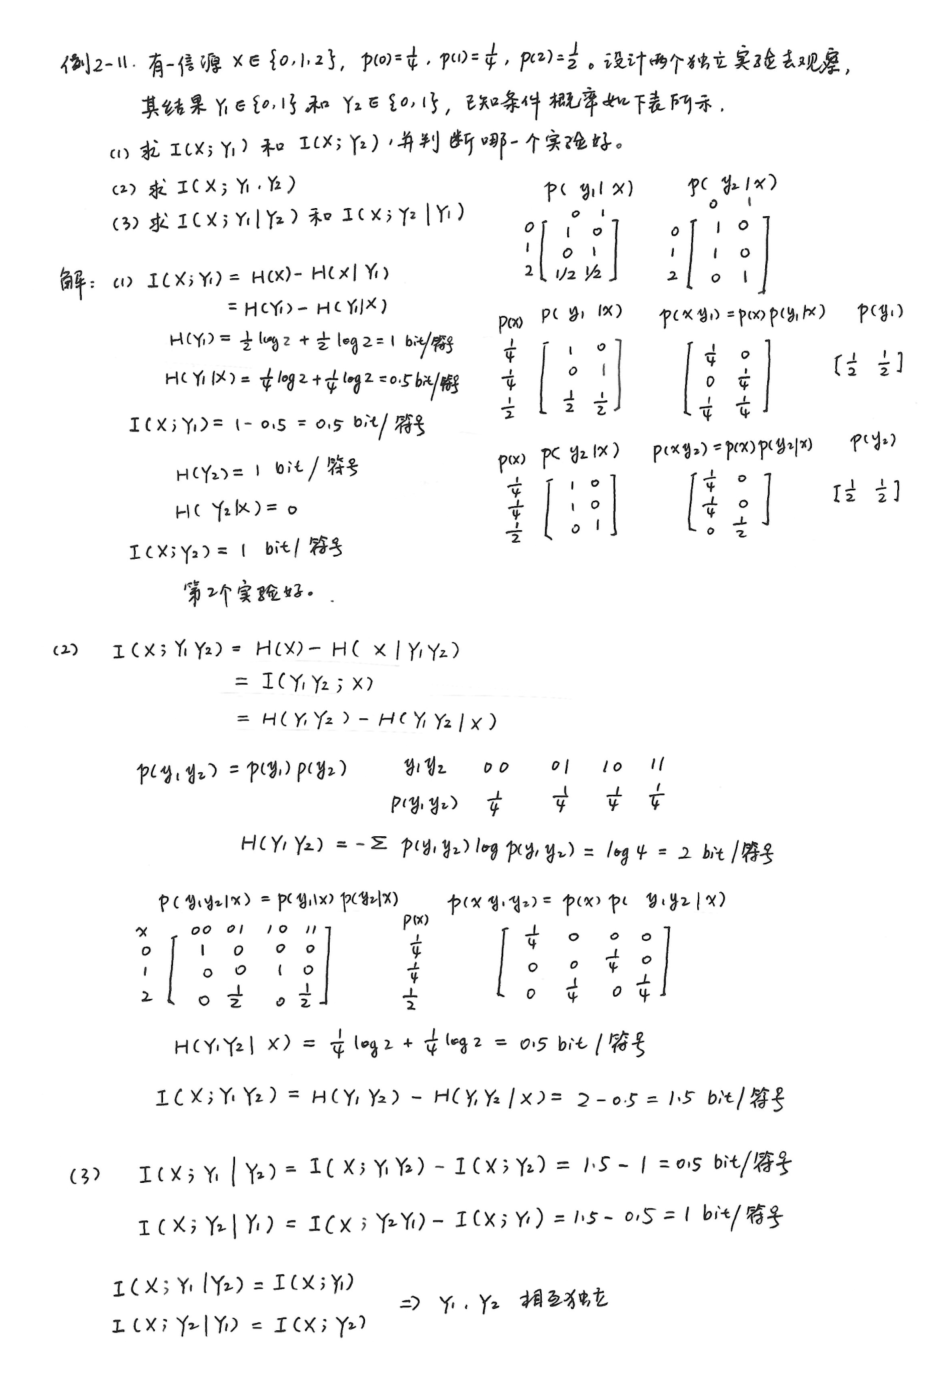 例2-11. 有一信源 X∈{0,1,2}, p(0)=1/4, p(1)=1/4, p(2)=1/2。设计两个独立实验去观察,
其结果 Y₁∈{0,1} 和 Y₂∈{0,1}, 已知条件概率如下表所示.
(1) 求 I(X;Y₁) 和 I(X;Y₂),并判断哪一个实验好。
(2) 求 I(X;Y₁,Y₂)
(3) 求 I(X;Y₁|Y₂) 和 I(X;Y₂|Y₁)
p(y₁|x) p(y₂|x)
0 1 0 1
0 [1 0] 0 [1 0]
1 [0 1] 1 [1 0]
2 [1/2 1/2] 2 [0 1]
解: (1) I(X;Y₁) = H(X) - H(X|Y₁)
= H(Y₁) - H(Y₁|X)
H(Y₁) = 1/2 log2 + 1/2 log2 = 1 bit/符号
H(Y₁|X) = 1/4 log2 + 1/4 log2 = 0.5 bit/符号
I(X;Y₁) = 1 - 0.5 = 0.5 bit/符号
p(x) p(y₁|x) p(xy₁)=p(x)p(y₁|x) p(y₁)
1/4 [1 0] [1/4 0] [1/2 1/2]
1/4 [0 1] [0 1/4]
1/2 [1/2 1/2] [1/4 1/4]
H(Y₂) = 1 bit/符号
H(Y₂|X) = 0
I(X;Y₂) = 1 bit/符号
第2个实验好。
p(x) p(y₂|x) p(xy₂)=p(x)p(y₂|x) p(y₂)
1/4 [1 0] [1/4 0] [1/2 1/2]
1/4 [1 0] [1/4 0]
1/2 [0 1] [0 1/2]
(2) I(X;Y₁Y₂) = H(X) - H(X|Y₁Y₂)
= I(Y₁Y₂;X)
= H(Y₁Y₂) - H(Y₁Y₂|X)
p(y₁y₂) = p(y₁)p(y₂) y₁y₂ 00 01 10 11
p(y₁y₂) 1/4 1/4 1/4 1/4
H(Y₁Y₂) = -Σ p(y₁y₂) log p(y₁y₂) = log4 = 2 bit/符号
p(y₁y₂|x) = p(y₁|x)p(y₂|x) p(x) p(xy₁y₂) = p(x)p(y₁y₂|x)
x 00 01 10 11
0 [1 0 0 0] 1/4 [1/4 0 0 0]
1 [0 0 1 0] 1/4 [0 0 1/4 0]
2 [0 1/2 0 1/2] 1/2 [0 1/4 0 1/4]
H(Y₁Y₂|X) = 1/4 log2 + 1/4 log2 = 0.5 bit/符号
I(X;Y₁Y₂) = H(Y₁Y₂) - H(Y₁Y₂|X) = 2-0.5 = 1.5 bit/符号
(3) I(X;Y₁|Y₂) = I(X;Y₁Y₂) - I(X;Y₂) = 1.5 - 1 = 0.5 bit/符号
I(X;Y₂|Y₁) = I(X;Y₂Y₁) - I(X;Y₁) = 1.5 - 0.5 = 1 bit/符号
I(X;Y₁|Y₂) = I(X;Y₁)
I(X;Y₂|Y₁) = I(X;Y₂) ⇒ Y₁, Y₂ 相互独立